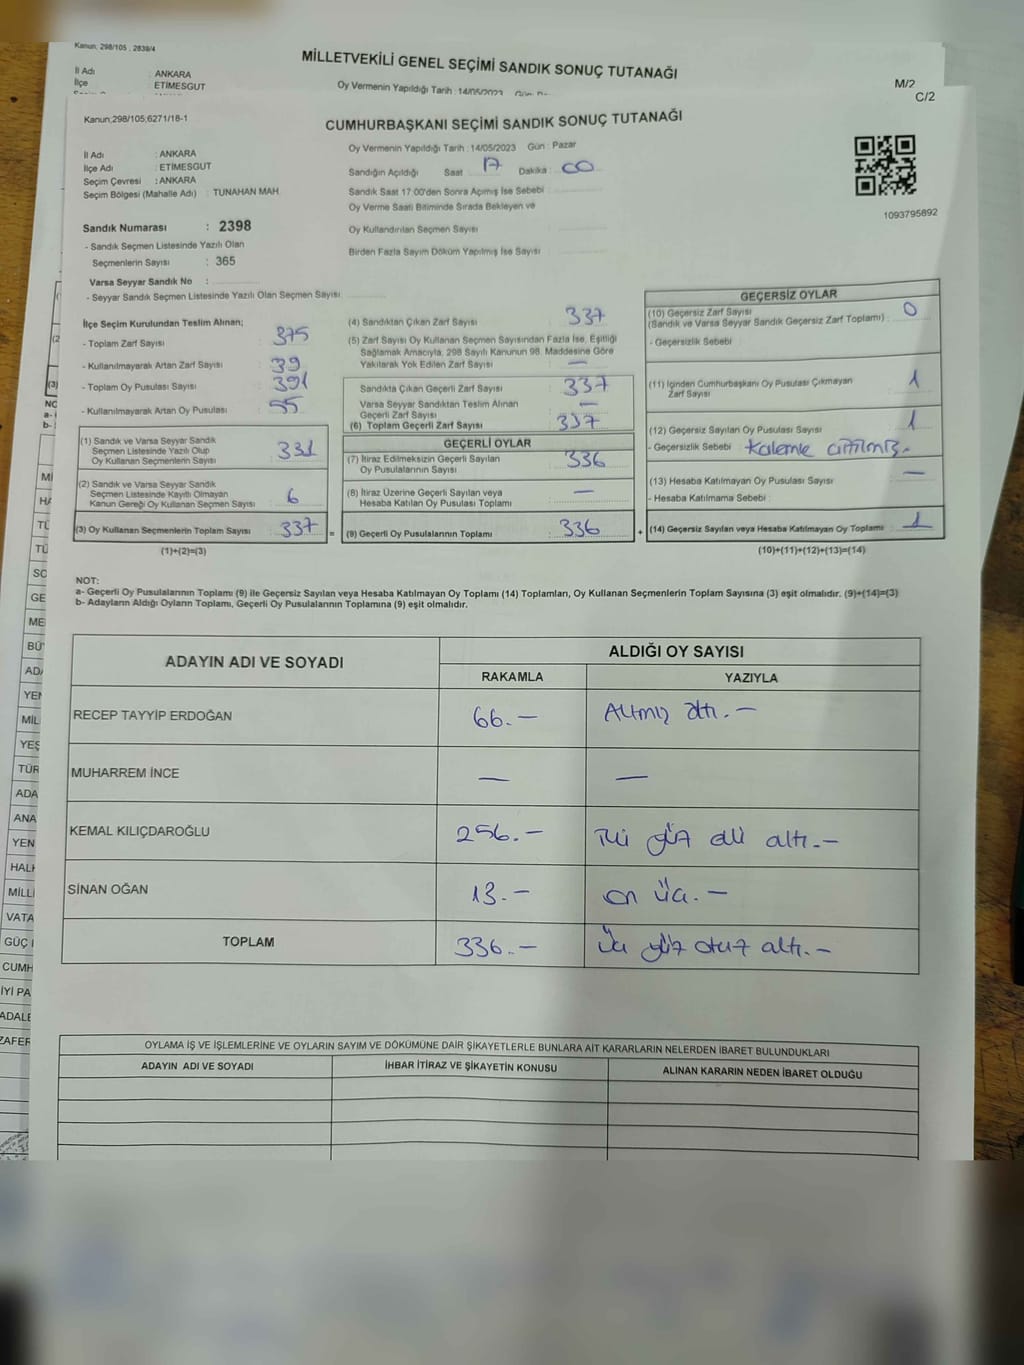 Kanun; 298/105 , 2839/4
MİLLETVEKİLİ GENEL SEÇİMİ SANDIK SONUÇ TUTANAĞI
İl Adı : ANKARA
İlçe ETİMESGUT
Oy Vermenin Yapıldığı Tarih :14/05/2023
M/2
C/2
Kanun;298/105;6271/18-1
CUMHURBAŞKANI SEÇİMİ SANDIK SONUÇ TUTANAĞI
İl Adı : ANKARA
İlçe Adı : ETİMESGUT
Seçim Çevresi : ANKARA
Seçim Bölgesi (Mahalle Adı) : TUNAHAN MAH.
Oy Vermenin Yapıldığı Tarih : 14/05/2023 Gün : Pazar
Sandığın Açıldığı Saat 17 Dakika : 00
Sandık Saat 17:00'den Sonra Açımış İse Sebebi
Oy Verme Saati Bitiminde Sırada Bekleyen ve
Oy Kullandırılan Seçmen Sayısı
Birden Fazla Sayım Döküm Yapılmış İse Sayısı
1093795892
Sandık Numarası : 2398
- Sandık Seçmen Listesinde Yazılı Olan
Seçmenlerin Sayısı : 365
Varsa Seyyar Sandık No :
- Seyyar Sandık Seçmen Listesinde Yazılı Olan Seçmen Sayısı
İlçe Seçim Kurulundan Teslim Alınan;
- Toplam Zarf Sayısı : 375
- Kullanılmayarak Artan Zarf Sayısı : 39
- Toplam Oy Pusulası Sayısı : 391
- Kullanılmayarak Artan Oy Pusulası : 55
(1) Sandık ve Varsa Seyyar Sandık
Seçmen Listesinde Yazılı Olup
Oy Kullanan Seçmenlerin Sayısı : 331
(2) Sandık ve Varsa Seyyar Sandık
Seçmen Listesinde Kayıtlı Olmayan
Kanun Gereği Oy Kullanan Seçmen Sayısı : 6
(3) Oy Kullanan Seçmenlerin Toplam Sayısı : 337 =
(1)+(2)=(3)
(4) Sandıktan Çıkan Zarf Sayısı : 337
(5) Zarf Sayısı Oy Kullanan Seçmen Sayısından Fazla İse, Eşitliği
Sağlamak Amacıyla, 298 Sayılı Kanunun 98. Maddesine Göre
Yakılarak Yok Edilen Zarf Sayısı : —
Sandıkta Çıkan Geçerli Zarf Sayısı : 337
Varsa Seyyar Sandıktan Teslim Alınan
Geçerli Zarf Sayısı : —
(6) Toplam Geçerli Zarf Sayısı : 337
GEÇERLİ OYLAR
(7) İtiraz Edilmeksizin Geçerli Sayılan
Oy Pusulalarının Sayısı : 336
(8) İtiraz Üzerine Geçerli Sayılan veya
Hesaba Katılan Oy Pusulası Toplamı : —
(9) Geçerli Oy Pusulalarının Toplamı : 336 +
GEÇERSİZ OYLAR
(10) Geçersiz Zarf Sayısı
(Sandık ve Varsa Seyyar Sandık Geçersiz Zarf Toplamı) : 0
- Geçersizlik Sebebi :
(11) İçinden Cumhurbaşkanı Oy Pusulası Çıkmayan
Zarf Sayısı : 1
(12) Geçersiz Sayılan Oy Pusulası Sayısı : 1
- Geçersizlik Sebebi : Kalemle
(13) Hesaba Katılmayan Oy Pusulası Sayısı : —
- Hesaba Katılmama Sebebi :
(14) Geçersiz Sayılan veya Hesaba Katılmayan Oy Toplamı : 1
(10)+(11)+(12)+(13)=(14)
NOT:
a- Geçerli Oy Pusulalarının Toplamı (9) ile Geçersiz Sayılan veya Hesaba Katılmayan Oy Toplamı (14) Toplamları, Oy Kullanan Seçmenlerin Toplam Sayısına (3) eşit olmalıdır. (9)+(14)=(3)
b- Adayların Aldığı Oyların Toplamı, Geçerli Oy Pusulalarının Toplamına (9) eşit olmalıdır.
ADAYIN ADI VE SOYADI ALDIĞI OY SAYISI
RAKAMLA YAZIYLA
RECEP TAYYİP ERDOĞAN 66.— Altmış altı.—
MUHARREM İNCE — —
KEMAL KILIÇDAROĞLU 256.— İki yüz elli altı.—
SİNAN OĞAN 13.— on üç.—
TOPLAM 336.— üç yüz otuz altı.—
OYLAMA İŞ VE İŞLEMLERİNE VE OYLARIN SAYIM VE DÖKÜMÜNE DAİR ŞİKAYETLERLE BUNLARA AİT KARARLARIN NELERDEN İBARET BULUNDUKLARI
ADAYIN ADI VE SOYADI İHBAR İTİRAZ VE ŞİKAYETİN KONUSU ALINAN KARARIN NEDEN İBARET OLDUĞU